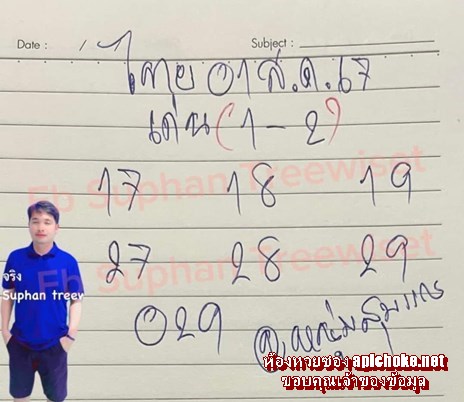 Date : / Subject :
ไทย 01 ส.ค. 67
เด่น (1 - 2)
17 18 19
27 28 29
029
Fb Suphan Treewiset
Fb Suphan Treewiset
จริง
Suphan treew
ห้องหวยซอง apichoke.net
ขอบคุณเจ้าของข้อมูล